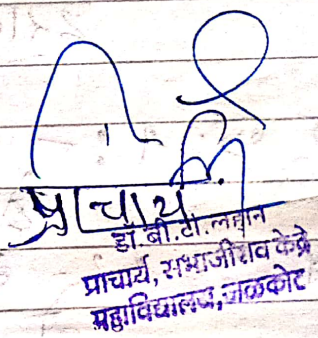 प्राचार्य
डॉ. बी. टी. लहाने
प्राचार्य, संभाजीराव केंद्रे
महाविद्यालय, जळकोट